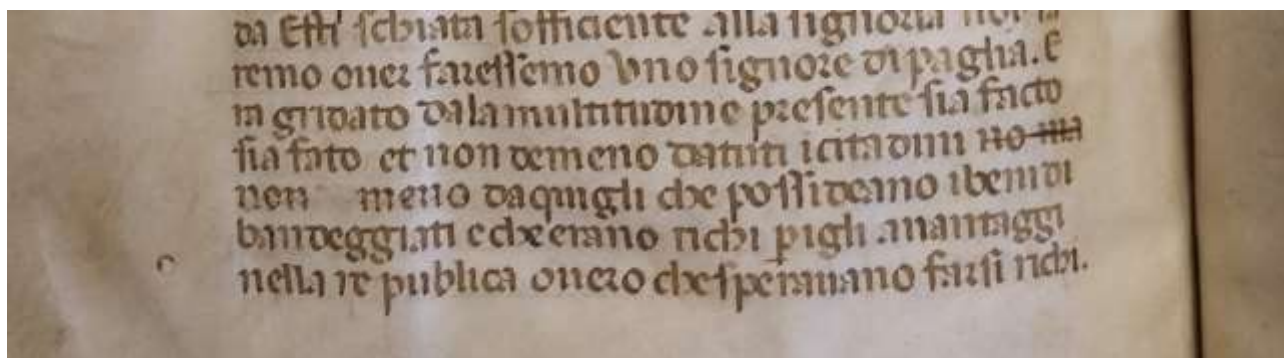 da Essi schiata sofficiente alla signoria
remo over faressemo uno signore di paglia. E
in gridato dala multitudine presente sia facto
sia fato et non demeno da tutti i citadini no
non meno da quigli che possideano i beni di
bandeggiati e che erano richi p igli avantaggi
nella re publica overo che speravano farsi richi.